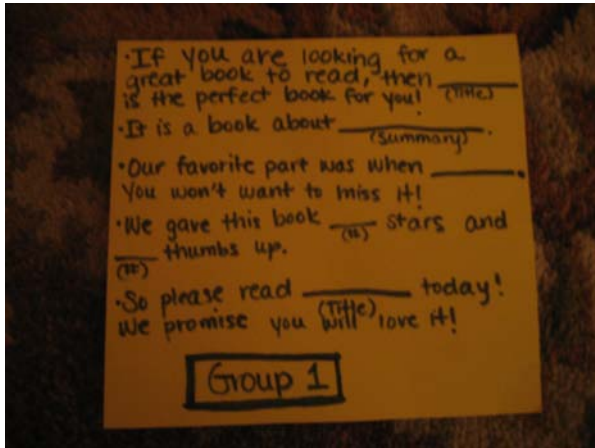 ·If you are looking for a
great book to read, then ______
(Title)
is the perfect book for you!
·It is a book about ______.
(summary)
·Our favorite part was when ______.
You won't want to miss it!
·We gave this book ___ stars and
(#)
___ thumbs up.
(#)
·So please read ______ today!
(Title)
We promise you will love it!
Group 1